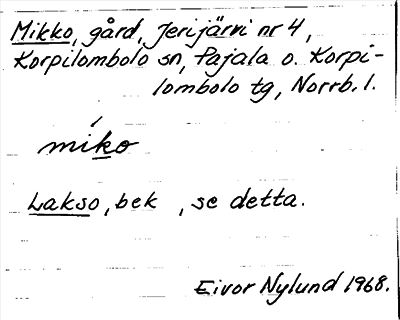 Mikko, gård, Jerijärvi nr 4,
Korpilombolo sn, Pajala o. Korpi-
lombolo tg, Norrb. l.
míko
Lakso, bek , se detta.
Eivor Nylund 1968.